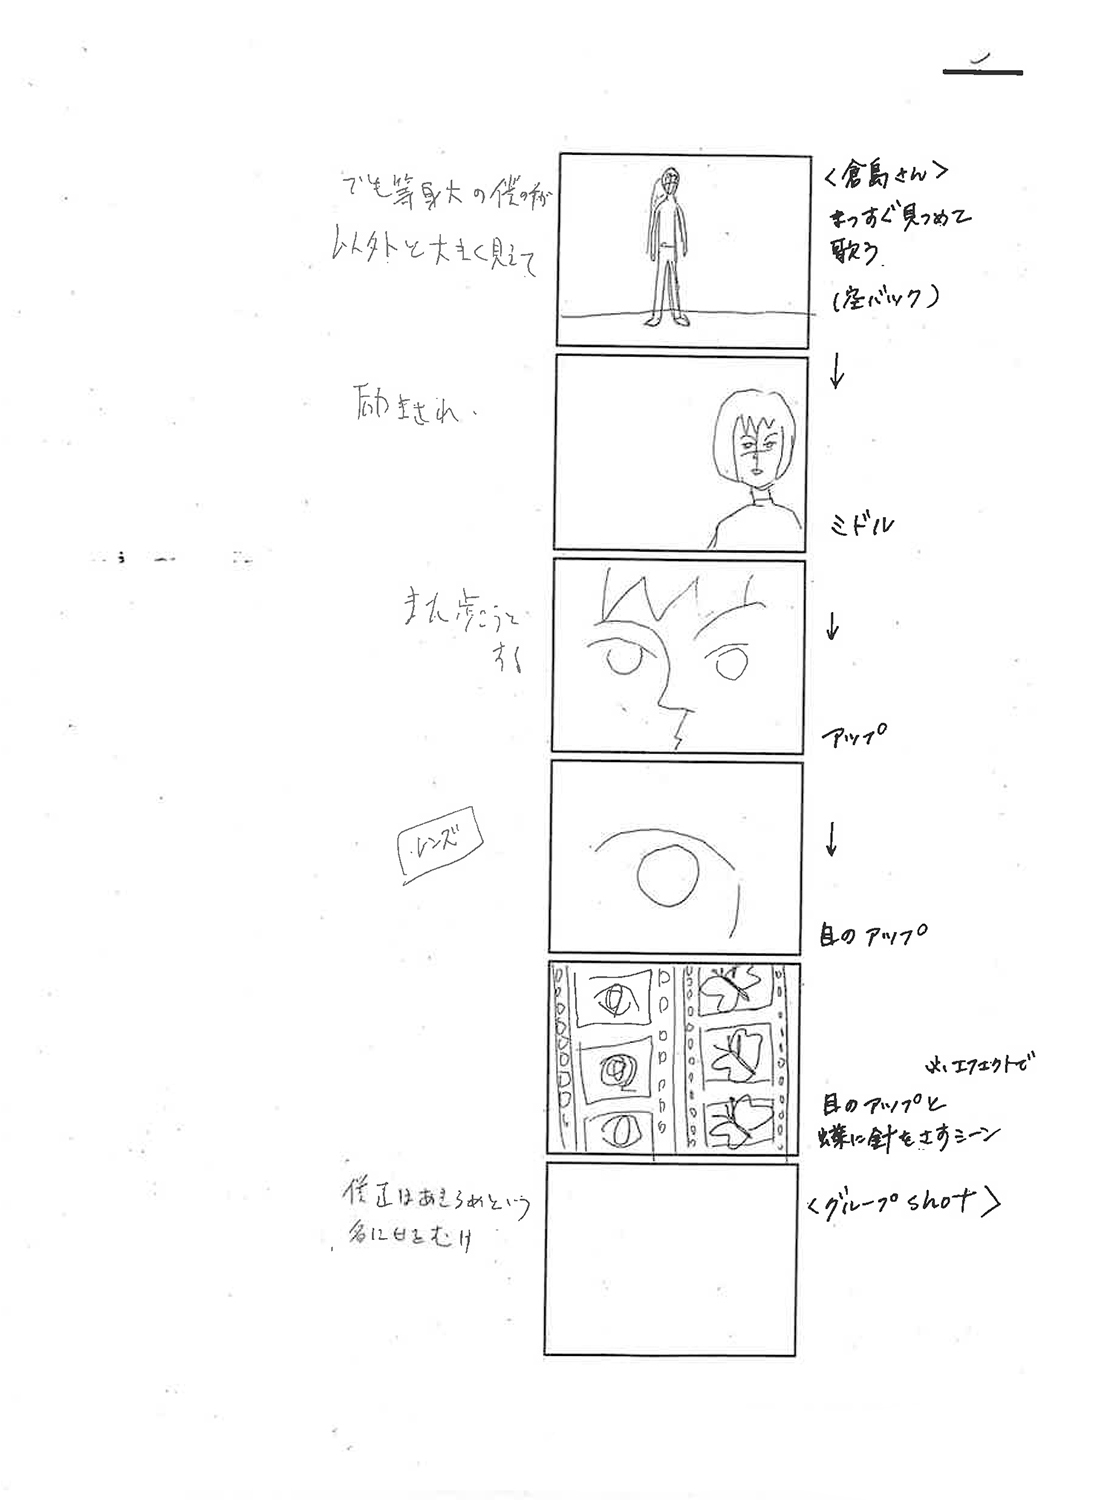 でも等身大の僕の影が
以外と大きく見えて
<倉島さん>
まっすぐ見つめて
歌う
(空バック)
↓
励まされ、
ミドル
また歩こうと
する
↓
アップ
レンズ
↓
目のアップ
※エフェクトで
目のアップと
蝶に針をさすシーン
僕はあきらめという
名に目をむけ
<グループshot>